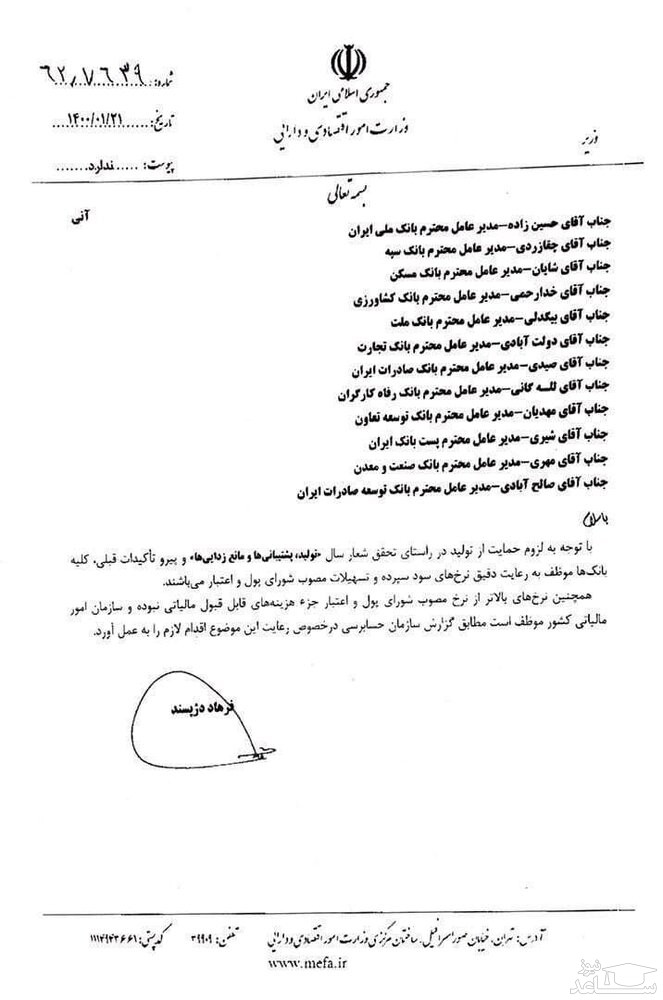 جمهوری اسلامی ایران
وزارت امور اقتصادی و دارایی
وزیر
شماره: ۶۲/۷۶۳۹
تاریخ: ۱۴۰۰/۰۱/۲۱
پیوست: ندارد
بسمه تعالی
آنی
جناب آقای حسین زاده–مدیر عامل محترم بانک ملی ایران
جناب آقای چقازردی–مدیر عامل محترم بانک سپه
جناب آقای شایان–مدیر عامل محترم بانک مسکن
جناب آقای خدارحمی–مدیر عامل محترم بانک کشاورزی
جناب آقای بیگدلی–مدیر عامل محترم بانک ملت
جناب آقای دولت آبادی–مدیر عامل محترم بانک تجارت
جناب آقای صیدی–مدیر عامل محترم بانک صادرات ایران
جناب آقای لله گانی–مدیر عامل محترم بانک رفاه کارگران
جناب آقای مهدیان–مدیر عامل محترم بانک توسعه تعاون
جناب آقای شیری–مدیر عامل محترم پست بانک ایران
جناب آقای مهری–مدیر عامل محترم بانک صنعت و معدن
جناب آقای صالح آبادی–مدیر عامل محترم بانک توسعه صادرات ایران
باسلام
با توجه به لزوم حمایت از تولید در راستای تحقق شعار سال «تولید، پشتیبانی‌ها و مانع زدایی‌ها» و پیرو تأکیدات قبلی، کلیه
بانک‌ها موظف به رعایت دقیق نرخ‌های سود سپرده و تسهیلات مصوب شورای پول و اعتبار می‌باشند.
همچنین نرخ‌های بالاتر از نرخ مصوب شورای پول و اعتبار جزء هزینه‌های قابل قبول مالیاتی نبوده و سازمان امور
مالیاتی کشور موظف است مطابق گزارش سازمان حسابرسی درخصوص رعایت این موضوع اقدام لازم را به عمل آورد.
فرهاد دژپسند
آدرس: تهران، خیابان صوراسرافیل، ساختمان مرکزی وزارت امور اقتصادی و دارایی تلفن: ۳۹۹۰۹ کدپستی: ۱۱۱۴۹۴۳۶۶۱
www.mefa.ir
ساعد